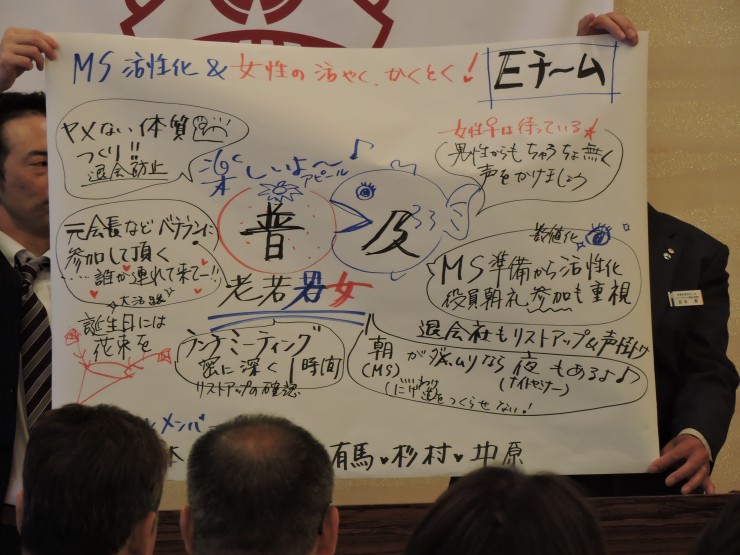 MS 活性化 & 女性の活やく、かくとく!
Eチーム
ヤメない体質
つくり!!
退会防止
楽しいよ〜♪
アピール
女性は待っている
男性からもちゅうちょ無く
声をかけましょう
普及
老若男女
元会長などベテランに
参加して頂く
…誰か連れて来てー!!
誕生日には
花束を
数値化
MS準備から活性化
役員朝礼参加も重視
ランチミーティング
密に深く1時間
リストアップの確認
退会社もリストアップ&声掛け
朝がムリなら夜もあるよ♪
(MS)
(ナイトセミナー)
(にげ道をつくらせない!)
メンバー
有馬・杉村・中原